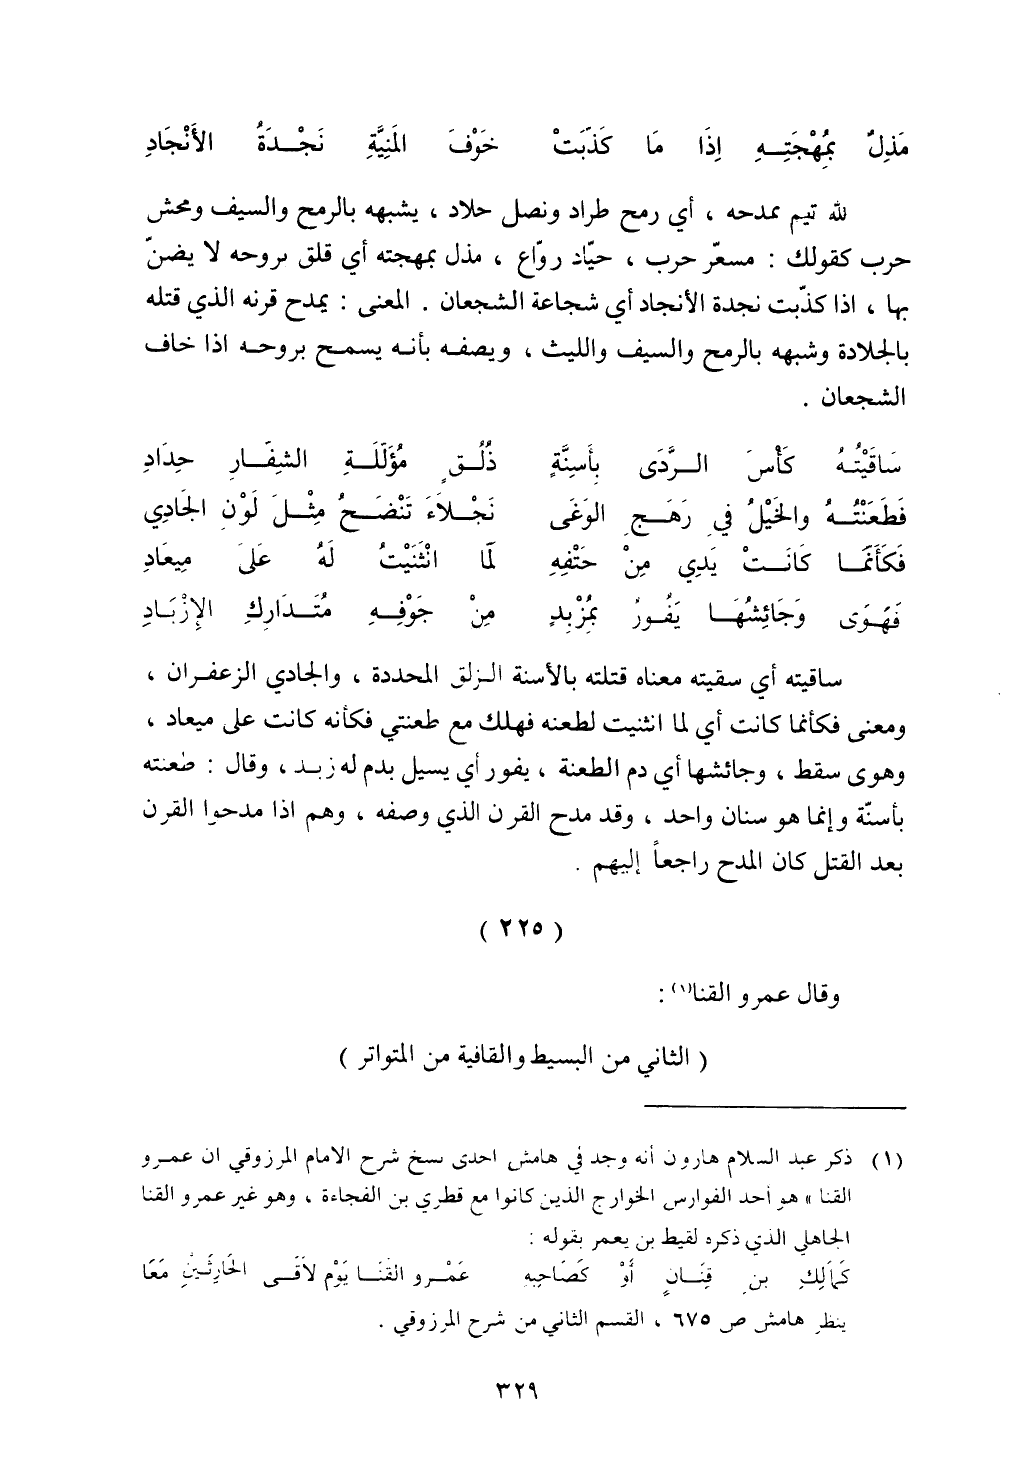 مَذِلٌ بِمُهْجَتِـــهِ إِذَا مَا كَذَّبَتْ خَوْفَ المَنِيَّةِ نَجْـــدَةُ الأَنْجَادِ
لله تيم يمدحه ، أي رمح طراد ونصل جلاد ، يشبهه بالرمح والسيف ومحش
حرب كقولك : مسعّر حرب ، حيّاد روّاع ، مذل بمهجته أي قلق بروحه لا يضنّ
بها ، اذا كذّبت نجدة الأنجاد أي شجاعة الشجعان . المعنى : يمدح قرنه الذي قتله
بالجلادة وشبهه بالرمح والسيف والليث ، ويصفه بأنه يسمح بروحه اذا خاف
الشجعان .
سَاقَيْتُهُ كَأْسَ الرَّدَى بِأَسِنَّةٍ ذُلُقٍ مُؤَلَّلَةِ الشِفَارِ حِدَادِ
فَطَعَنْتُهُ والخَيْلُ في رَهَجِ الوَغَى نَجْلاَءَ تَنْضَحُ مِثْلَ لَوْنِ الجَادِي
فَكَأَنَّمَا كَانَتْ يَدِي مِنْ حَتْفِهِ لَمَّا انْثَنَيْتُ لَهُ عَلَى مِيعَادِ
فَهَوَى وَجَائِشُهَا يَفُورُ بِمُزْبِدٍ مِنْ جَوْفِهِ مُتَدَارِكِ الإِزْبَادِ
ساقيته أي سقيته معناه قتلته بالأسنة الزلق المحددة ، والجادي الزعفران ،
ومعنى فكأنما كانت أي لما انثنيت لطعنه فهلك مع طعنتي فكأنه كانت على ميعاد ،
وهوى سقط ، وجائشها أي دم الطعنة ، يفور أي يسيل بدم له زبد ، وقال : طعنته
بأسنّة وإنما هو سنان واحد ، وقد مدح القرن الذي وصفه ، وهم اذا مدحوا القرن
بعد القتل كان المدح راجعاً إليهم .
( ٢٢٥ )
وقال عمرو القنا(١) :
( الثاني من البسيط والقافية من المتواتر )
(١) ذكر عبد السلام هارون أنه وجد في هامش احدى نسخ شرح الامام المرزوقي ان عمرو
القنا » هو أحد الفوارس الخوارج الذين كانوا مع قطري بن الفجاءة ، وهو غير عمرو القنا
الجاهلي الذي ذكره لقيط بن يعمر بقوله :
كَمَالِكِ بن قِنَانٍ أَوْ كَصَاحِبِهِ عَمْرو القَنَا يَوْم لاَقَى الحَارِثَيْنِ مَعَا
ينظر هامش ص ٦٧٥ ، القسم الثاني من شرح المرزوقي .
٣٢٩